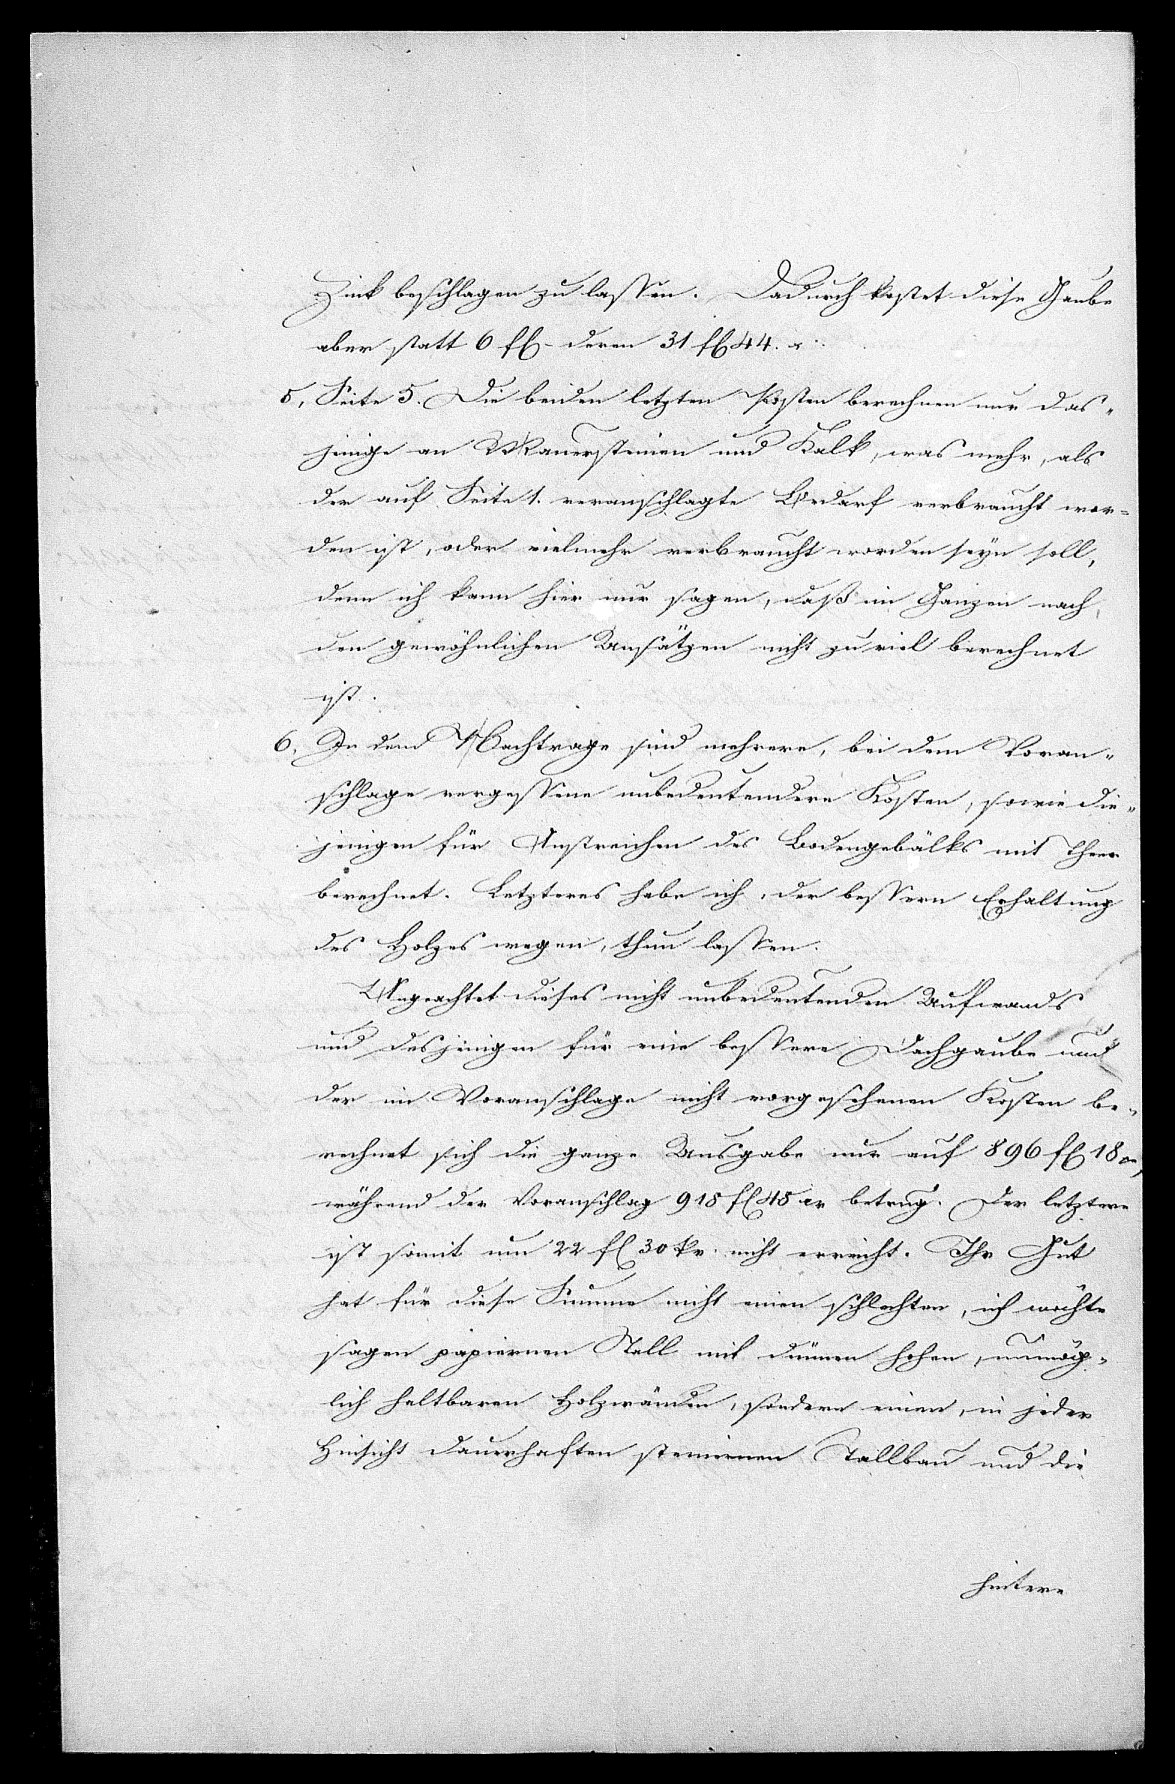 Zink beschlagen zu lassen. Dadurch kostet diese Gaube
aber statt 6 fl – deren 31 fl 44. x.
5, Seite 5. Die beiden letzten Posten berechnen nur das-
jenige an Mauersteinen und Kalk, was mehr, als
der auf Seite 1. veranschlagte Bedarf verbraucht wor=
den ist, oder vielmehr verbraucht worden seyn soll,
denn ich kann hier nur sagen, daß im Ganzen nach
den gewöhnlichen Ansätzen nicht zu viel berechnet
ist.
6, In dem Nachtrage sind mehrere, bei dem Voran-
schlage vergessene unbedeutendere Kosten, sowie die-
jenigen für Anstreichen des Bodengebälks mit Theer
berechnet. Letzteres habe ich, der bessern Erhaltung
des Holzes wegen, thun lassen.
Ungeachtet dieses nicht unbedeutenden Aufwands
und desjenigen für eine bessere Dachgaube und
der im Voranschlage nicht vorgesehenen Kosten be-
rechnet sich die ganze Ausgabe nur auf 896 fl 18 xr,
während der Voranschlag 918 fl 48 xr betrug. Der letztere
ist somit um 22 fl 30 kr. nicht erreicht. Ihr Gut
hat für diese Summe nicht einen schlechten, ich möchte
sagen papiernen Stall mit dünnen hohen, unmög-
lich haltbaren Holzwänden, sondern einen, in jeder
Hinsicht dauerhaften steinernen Stallbau und die
hintere